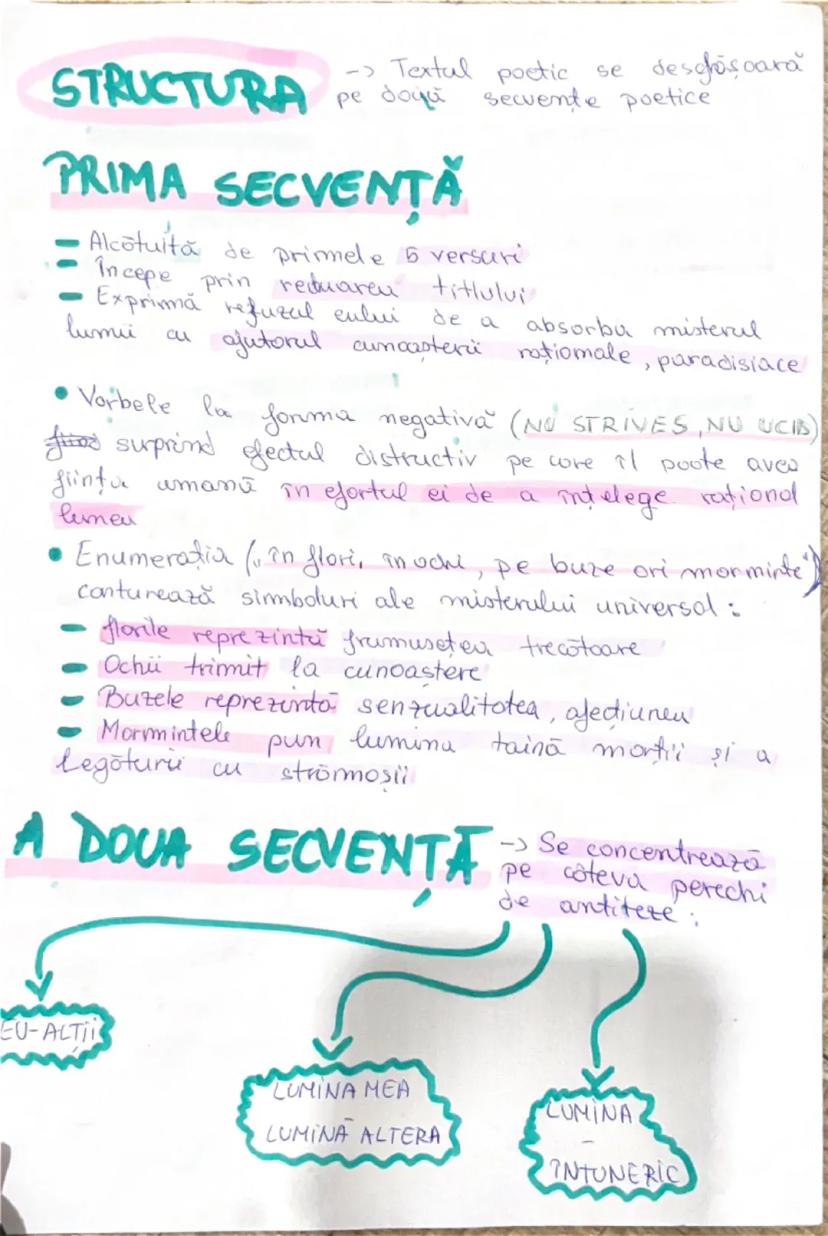 STRUCTURA -> Textul poetic se desfășoară
pe două secvențe poetice
PRIMA SECVENȚĂ
- Alcătuită de primele 5 versuri
- Începe prin reluarea titlului
- Exprimă refuzul eului de a absorba misterul
lumii cu ajutorul cunoașterii raționale, paradisiace
• Verbele la forma negativă (NU STRIVES, NU UCID)
surprind efectul distructiv pe care îl poate avea
ființa umană în efortul ei de a înțelege rațional
lumea
• Enumerația („în flori, în ochi, pe buze ori morminte")
conturează simboluri ale misterului universal:
- florile reprezintă frumusețea trecătoare
- Ochii trimit la cunoaștere
- Buzele reprezintă senzualitatea, afecțiunea
- Mormintele pun lumina taină morții și a
legăturii cu strămoșii
A DOUA SECVENȚĂ -> Se concentrează
pe câteva perechi
de antiteze:
EU-ALȚII
LUMINA MEA
-
LUMINĂ ALTERA
LUMINA
-
ÎNTUNERIC